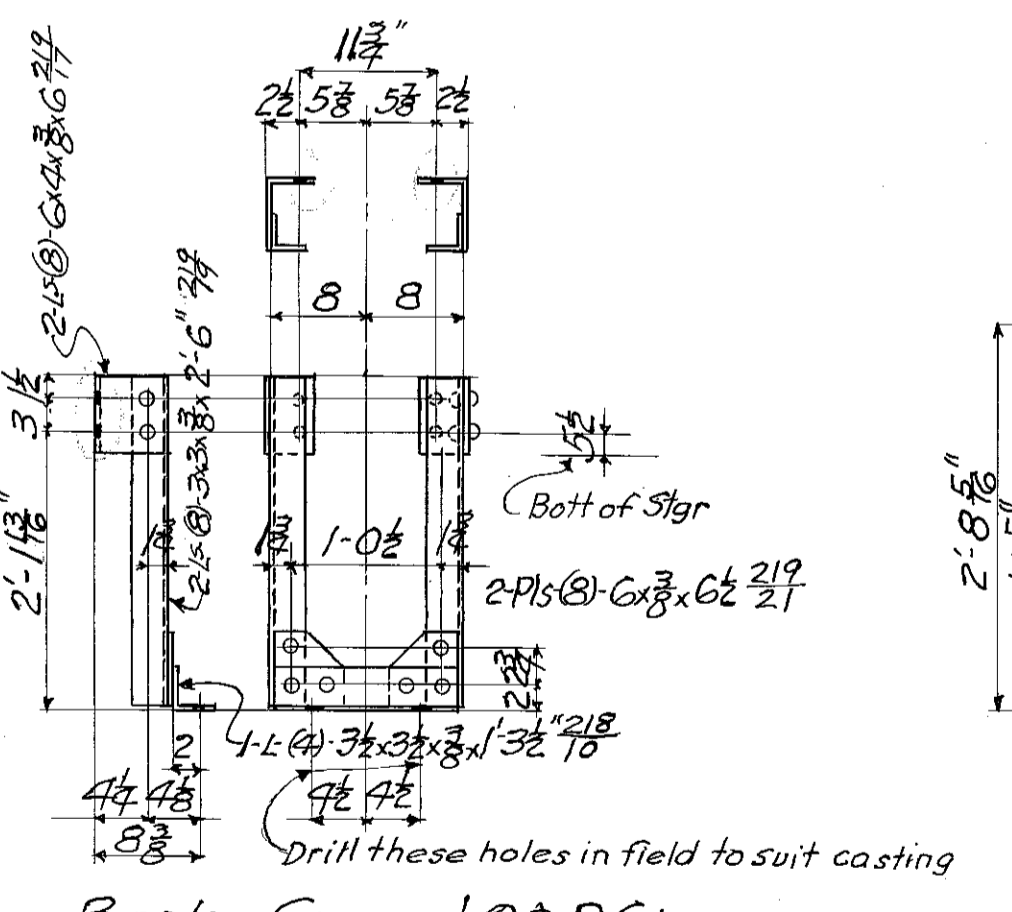 11 3/4"
2 1/2 5 7/8 5 7/8 2 1/2
2-Ls-(8)-6x4x3/8x6 219/17
8 8
2-Ls-(8)-3x3x3/8x2'-6" 219/19
1 1/2
3
5 1/2
Bott of Stgr
2'-1 13/16"
1-0 1/2
2-Pls-(8)-6x3/8x6 1/2 219/21
2'-8 5/16"
2 3/4
2
1-L-(4)-3 1/2x3 1/2x3/8x1'-3 1/2" 218/10
2
4 1/4 4 1/8
4 1/2 4 1/2
8 3/8
Drill these holes in field to suit casting